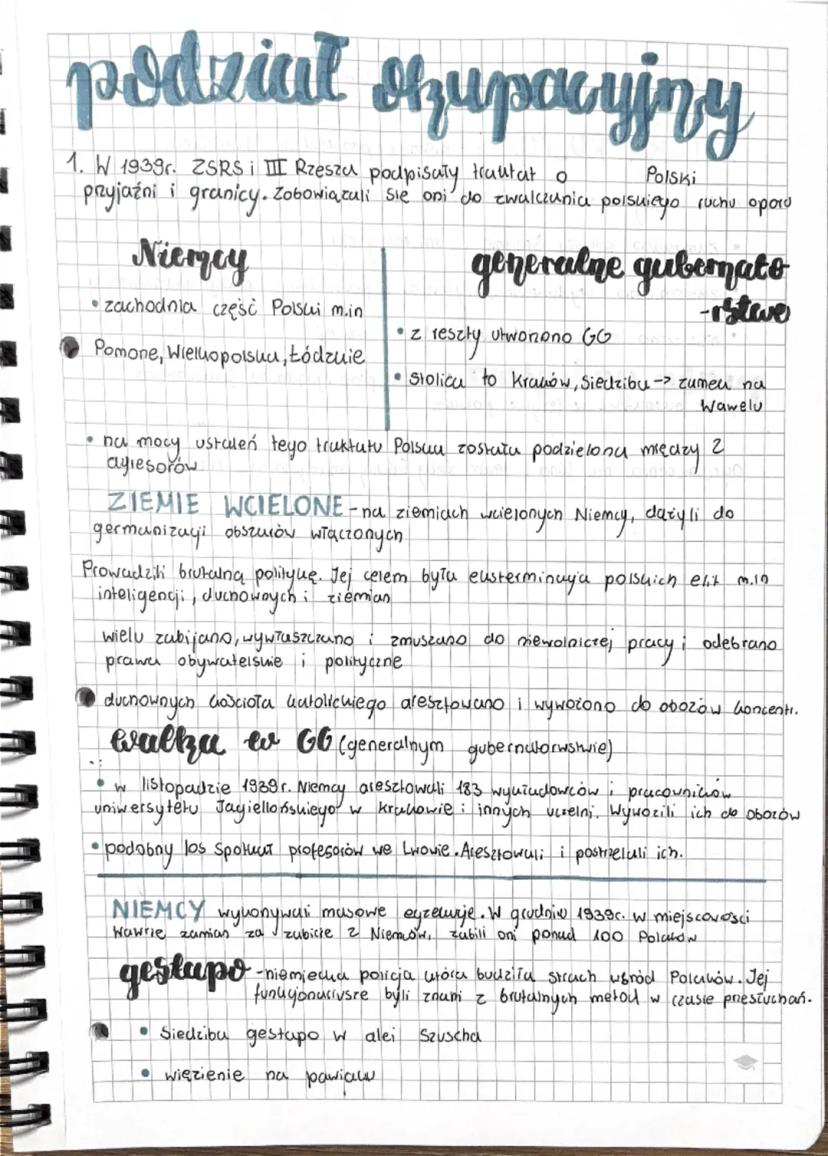 podział okupacyjny
1. W 1939r. ZSRS i III Rzesza podpisały traktat o Polski
przyjaźni i granicy. Zobowiązali się oni do zwalczania polskiego ruchu oporu
Niemcy
• zachodnia część Polski m.in
Pomorze, Wielkopolska, Łódzkie
generalne gubernato
-rstwo
• z reszty utworzono GG
• stolica to Kraków, siedziba -> zamek na
Wawelu
• na mocy ustaleń tego traktatu Polska została podzielona między 2
agresorów
ZIEMIE WCIELONE - na ziemiach wcielonych Niemcy, dążyli do
germanizacji obszarów włączonych
Prowadzili brutalną politykę. Jej celem była eksterminacja polskich elit m.in
inteligencji, duchownych i ziemian
wielu zabijano, wywłaszczano i zmuszano do niewolniczej pracy i odebrano
prawa obywatelskie i polityczne
duchownych kościoła katolickiego aresztowano i wywożono do obozów koncentr.
walka w GG (generalnym gubernatorwstwie)
• w listopadzie 1939r. Niemcy aresztowali 183 wykładowców i pracowników
uniwersytetu Jagiellońskiego w Krakowie i innych uczelni. Wywozili ich do obozów
• podobny los spotkał profesorów we Lwowie. Aresztowali i postrzelali ich.
NIEMCY wykonywali masowe egzekucje. W grudniu 1939r. w miejscowości
Wawrze zamian za zabicie 2 Niemców, zabili oni ponad 100 Polaków
gestapo - niemiecka policja która budziła strach wśród Polaków. Jej
funkcjonariusze byli znani z brutalnych metod w czasie przesłuchań.
• Siedziba gestapo w alei Szuscha
• więzienie na pawiaku